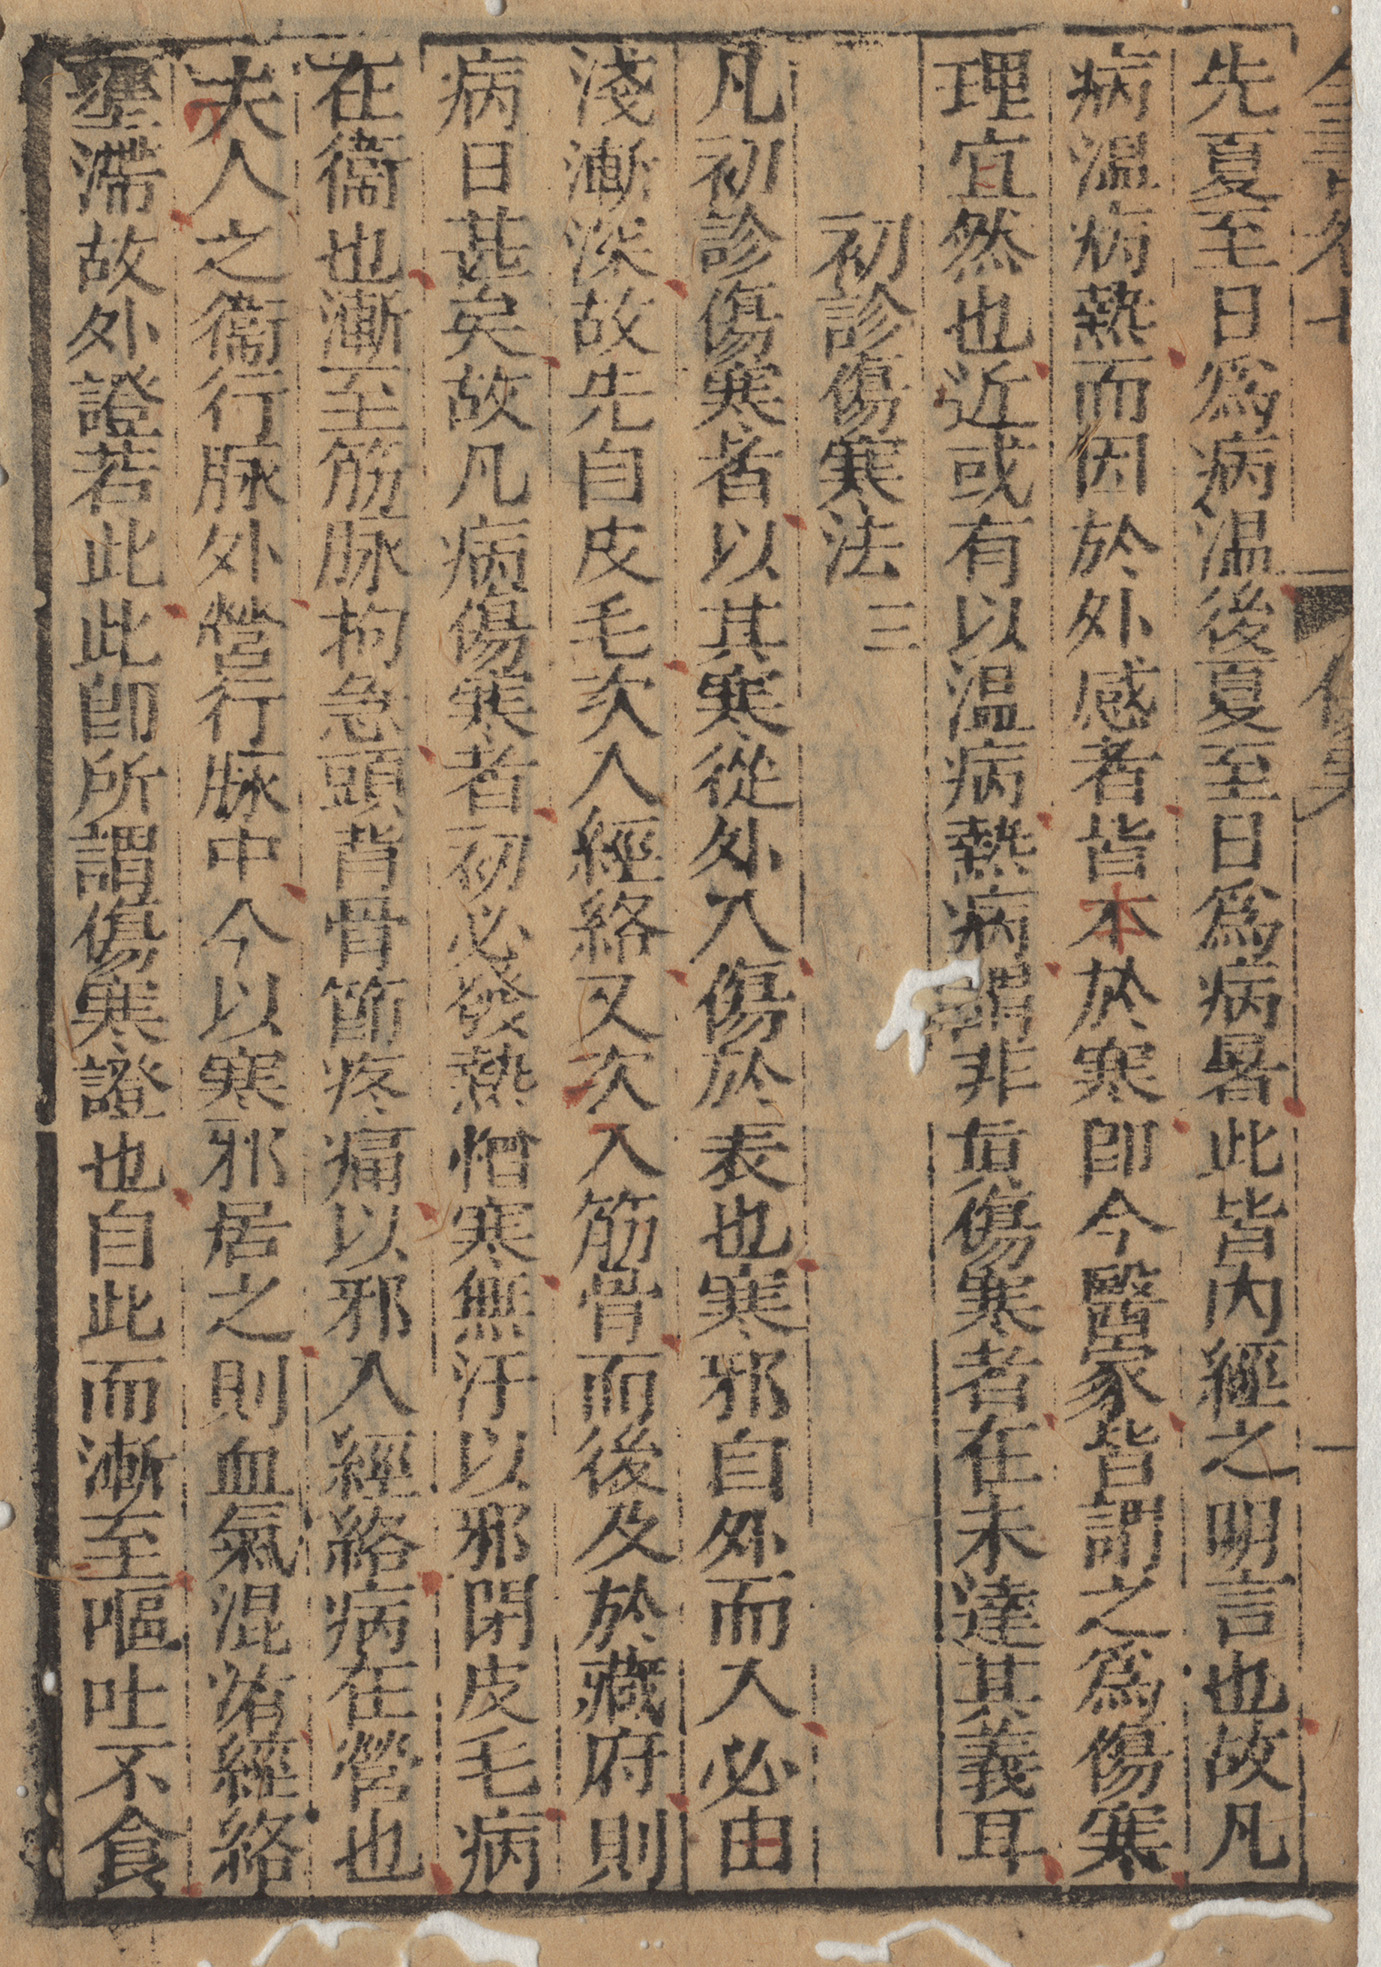 先夏至日爲病温後夏至日爲病暑此皆内經之明言也故凡
病温病熱而因於外感者皆本於寒即今醫家皆謂之爲傷寒
理宜然也近或有以温病熱病謂非眞傷寒者在未達其義耳
初診傷寒法 三
凡初診傷寒者以其寒從外入傷於表也寒邪自外而入必由
淺漸深故先自皮毛次入經絡又次入筋骨而後及於藏府則
病日甚矣故凡病傷寒者初必發熱憎寒無汗以邪閉皮毛病
在衞也漸至筋脉拘急頭背骨節疼痛以邪入經絡病在營也
夫人之衞行脉外營行脉中今以寒邪居之則血氣混淆經絡
壅滯故外證若此此即所謂傷寒證也自此而漸至嘔吐不食